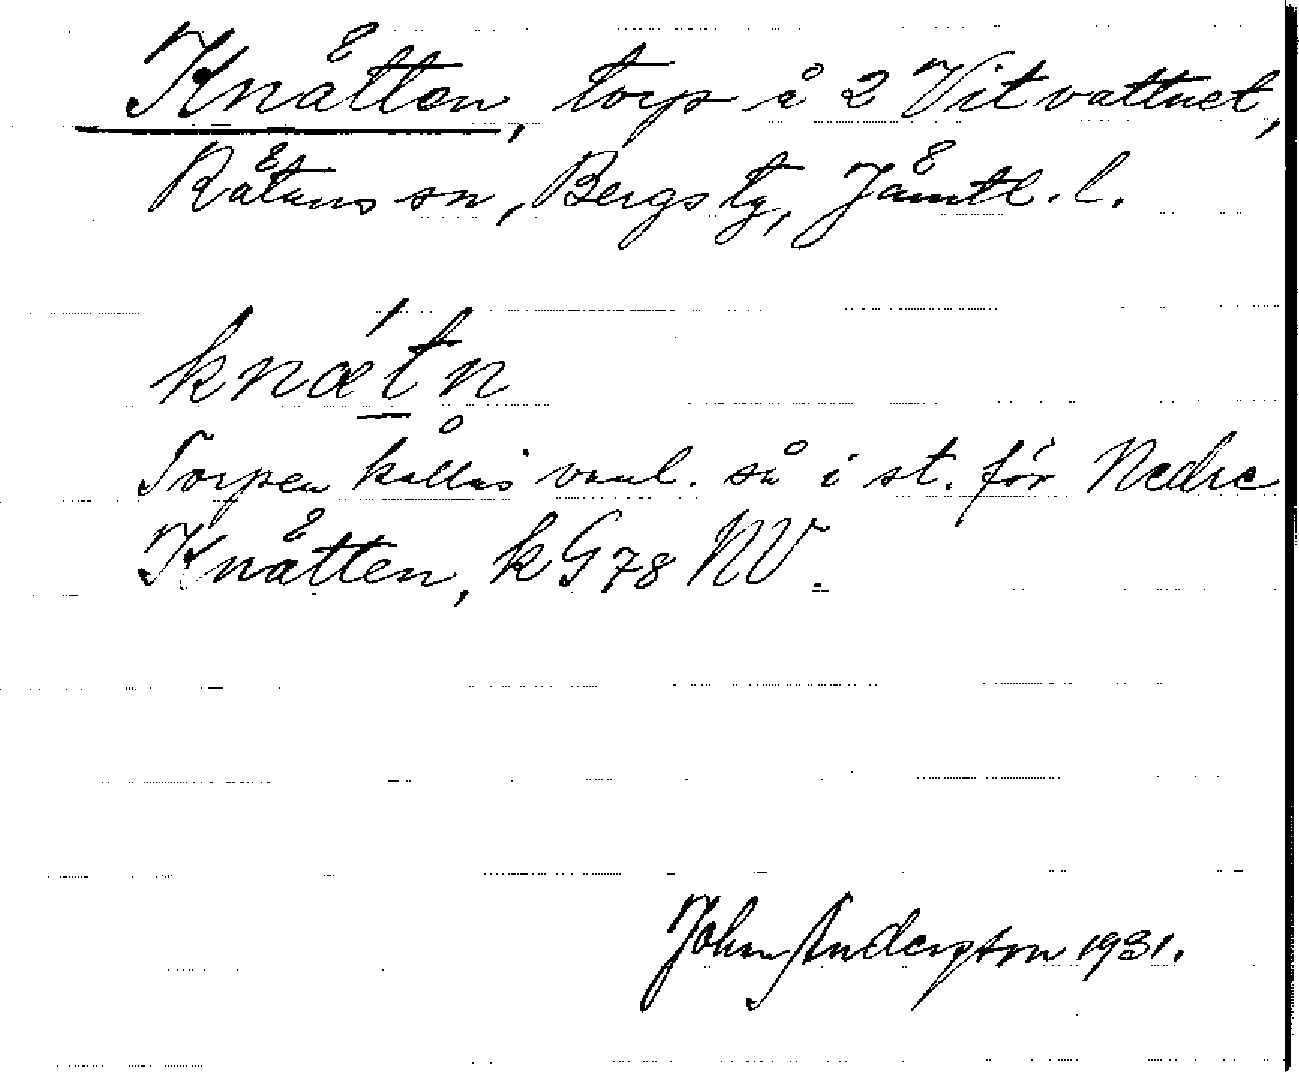 Knätten, torp å 2 Vitvattnet,
Rätans sn, Bergs tg, Jämtl. l.
knǽt̲n̥
Torpen kallas vanl. så i st. för Nedre
Knätten, k G78 NV.
John Anderson 1931.